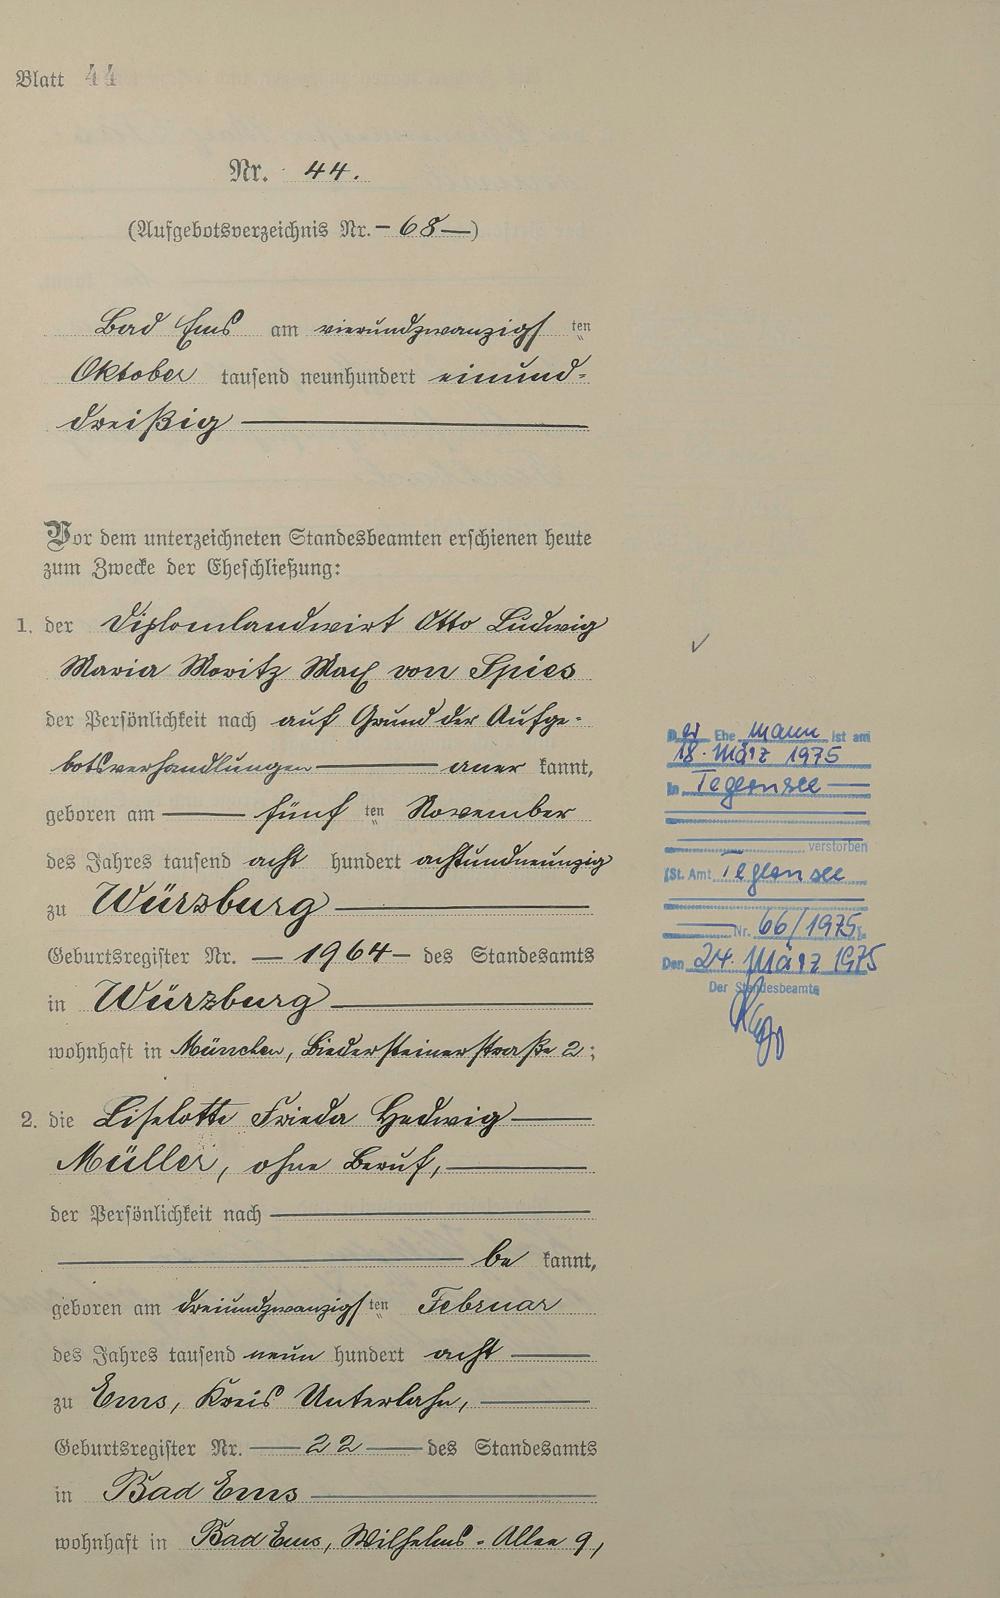 Blatt 44
Nr. 44.
(Aufgebotsverzeichnis Nr. – 68 —)
Bad Ems am vierundzwanzigs ten
Oktober tausend neunhundert einund-
dreißig
Vor dem unterzeichneten Standesbeamten erschienen heute
zum Zwecke der Eheschließung:
1. der Diplomlandwirt Otto Ludwig
Maria Moritz Max von Spies
der Persönlichkeit nach auf Grund der Aufge-
botsverhandlungen — aner kannt,
geboren am — fünf ten November
des Jahres tausend acht hundert achtundneunzig
zu Würzburg
Geburtsregister Nr. — 1964 — des Standesamts
in Würzburg
wohnhaft in München, Biedersteinerstraße 2;
2. die Liselotte Frieda Hedwig
Müller, ohne Beruf,
der Persönlichkeit nach
be kannt,
geboren am dreiundzwanzigs ten Februar
des Jahres tausend neun hundert acht
zu Ems, Kreis Unterlahn,
Geburtsregister Nr. — 22 — des Standesamts
in Bad Ems
wohnhaft in Bad Ems, Wilhelms-Allee 9,
Der Ehe mann ist am
18. März 1975
in Tegernsee
verstorben
(St. Amt Tegernsee
Nr. 66/1975).
Den 24. März 1975
Der Standesbeamte